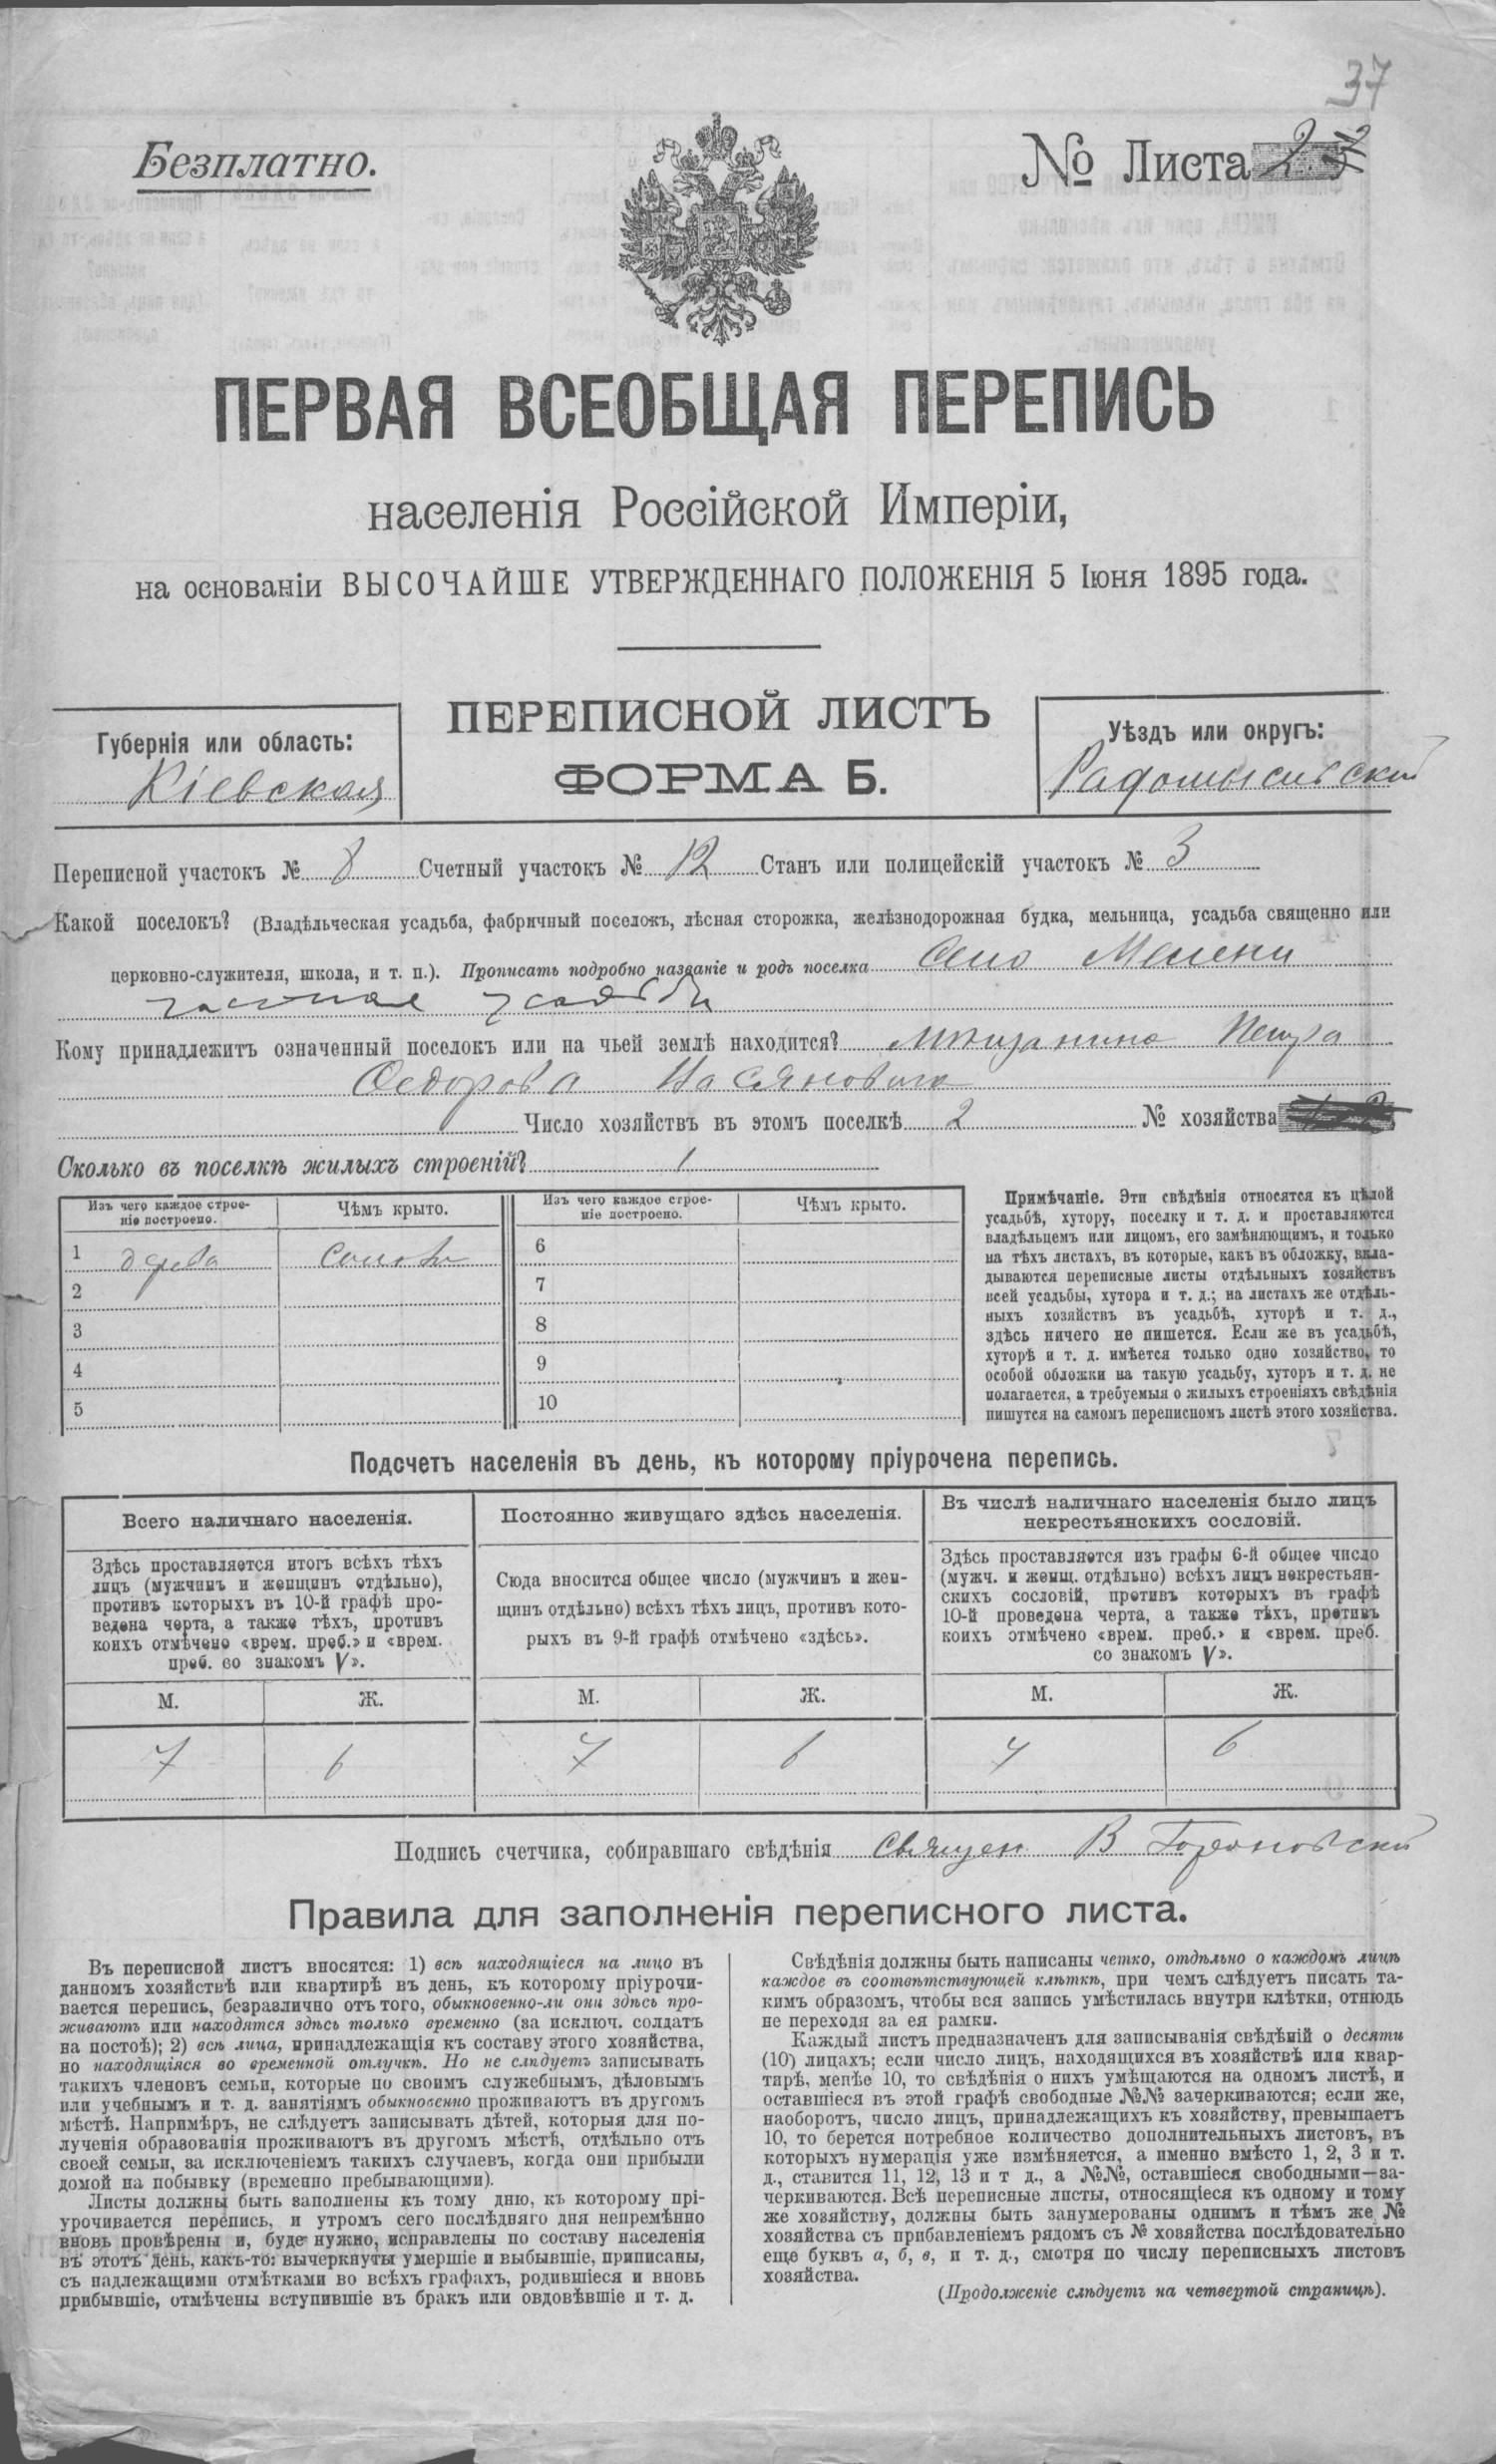 37
Безплатно.
№ Листа 2
ПЕРВАЯ ВСЕОБЩАЯ ПЕРЕПИСЬ
населенія Россійской Имперіи,
на основаніи ВЫСОЧАЙШЕ УТВЕРЖДЕННАГО ПОЛОЖЕНІЯ 5 Іюня 1895 года.
ПЕРЕПИСНОЙ ЛИСТЪ
ФОРМА Б.
Губернія или область:
Кіевская
Уѣздъ или округъ:
Радомысльскій
Переписной участокъ № 8 Счетный участокъ № 12 Станъ или полицейскій участокъ № 3
Какой поселокъ? (Владѣльческая усадьба, фабричный поселокъ, лѣсная сторожка, желѣзнодорожная будка, мельница, усадьба священно или
церковно-служителя, школа, и т. п.). Прописать подробно названіе и родъ поселка Село Мелени
частная усадьба
Кому принадлежитъ означенный поселокъ или на чьей землѣ находится? мѣщанина Петра
Федорова
Число хозяйствъ въ этомъ поселкѣ 2 № хозяйства
Сколько въ поселкѣ жилыхъ строеній? 1
Изъ чего каждое строе-
ніе построено.
Чѣмъ крыто.
Изъ чего каждое строе-
ніе построено.
Чѣмъ крыто.
1 дерева соломы 6
2 7
3 8
4 9
5 10
Примѣчаніе. Эти свѣдѣнія относятся къ цѣлой
усадьбѣ, хутору, поселку и т. д. и проставляются
владѣльцемъ или лицомъ, его замѣняющимъ, и только
на тѣхъ листахъ, въ которые, какъ въ обложку, вкла-
дываются переписные листы отдѣльныхъ хозяйствъ
всей усадьбы, хутора и т. д.; на листахъ же отдѣль-
ныхъ хозяйствъ въ усадьбѣ, хуторѣ и т. д.,
здѣсь ничего не пишется. Если же въ усадьбѣ,
хуторѣ и т. д. имѣется только одно хозяйство, то
особой обложки на такую усадьбу, хуторъ и т. д. не
полагается, а требуемыя о жилыхъ строеніяхъ свѣдѣнія
пишутся на самомъ переписномъ листѣ этого хозяйства.
Подсчетъ населенія въ день, къ которому пріурочена перепись.
Всего наличнаго населенія.
Здѣсь проставляется итогъ всѣхъ тѣхъ
лицъ (мужчинъ и женщинъ отдѣльно),
противъ которыхъ въ 10-й графѣ про-
ведена черта, а также тѣхъ, противъ
коихъ отмѣчено «врем. преб.» и «врем.
преб. со знакомъ V».
М. Ж.
7 6
Постоянно живущаго здѣсь населенія.
Сюда вносится общее число (мужчинъ и жен-
щинъ отдѣльно) всѣхъ тѣхъ лицъ, противъ кото-
рыхъ въ 9-й графѣ отмѣчено «здѣсь».
М. Ж.
7 6
Въ числѣ наличнаго населенія было лицъ
некрестьянскихъ сословій.
Здѣсь проставляется изъ графы 6-й общее число
(мужч. и женщ. отдѣльно) всѣхъ лицъ некрестьян-
скихъ сословій, противъ которыхъ въ графѣ
10-й проведена черта, а также тѣхъ, противъ
коихъ отмѣчено «врем. преб.» и «врем. преб.
со знакомъ V».
М. Ж.
7 6
Подпись счетчика, собиравшаго свѣдѣнія Священ. В.
Правила для заполненія переписного листа.
Въ переписной листъ вносятся: 1) всѣ находящіеся на лицо въ
данномъ хозяйствѣ или квартирѣ въ день, къ которому пріурочи-
вается перепись, безразлично отъ того, обыкновенно-ли они здѣсь про-
живаютъ или находятся здѣсь только временно (за исключ. солдатъ
на постоѣ); 2) всѣ лица, принадлежащія къ составу этого хозяйства,
но находящіяся во временной отлучкѣ. Но не слѣдуетъ записывать
такихъ членовъ семьи, которые по своимъ служебнымъ, дѣловымъ
или учебнымъ и т. д. занятіямъ обыкновенно проживаютъ въ другомъ
мѣстѣ. Напримѣръ, не слѣдуетъ записывать дѣтей, которыя для по-
лученія образованія проживаютъ въ другомъ мѣстѣ, отдѣльно отъ
своей семьи, за исключеніемъ такихъ случаевъ, когда они прибыли
домой на побывку (временно пребывающими).
Листы должны быть заполнены къ тому дню, къ которому прі-
урочивается перепись, и утромъ сего послѣдняго дня непремѣнно
вновь провѣрены и, буде нужно, исправлены по составу населенія
въ этотъ день, какъ-то: вычеркнуты умершіе и выбывшіе, приписаны,
съ надлежащими отмѣтками во всѣхъ графахъ, родившіеся и вновь
прибывшіе, отмѣчены вступившіе въ бракъ или овдовѣвшіе и т. д.
Свѣдѣнія должны быть написаны четко, отдѣльно о каждомъ лицѣ
каждое въ соотвѣтствующей клѣткѣ, при чемъ слѣдуетъ писать та-
кимъ образомъ, чтобы вся запись умѣстилась внутри клѣтки, отнюдь
не переходя за ея рамки.
Каждый листъ предназначенъ для записыванія свѣдѣній о десяти
(10) лицахъ; если число лицъ, находящихся въ хозяйствѣ или квар-
тирѣ, менѣе 10, то свѣдѣнія о нихъ умѣщаются на одномъ листѣ, и
оставшіеся въ этой графѣ свободные №№ зачеркиваются; если же,
наоборотъ, число лицъ, принадлежащихъ къ хозяйству, превышаетъ
10, то берется потребное количество дополнительныхъ листовъ, въ
которыхъ нумерація уже измѣняется, а именно вмѣсто 1, 2, 3 и т.
д., ставится 11, 12, 13 и т д., а №№, оставшіеся свободными—за-
черкиваются. Всѣ переписные листы, относящіеся къ одному и тому
же хозяйству, должны быть занумерованы однимъ и тѣмъ же №
хозяйства съ прибавленіемъ рядомъ съ № хозяйства послѣдовательно
еще буквъ а, б, в, и т. д., смотря по числу переписныхъ листовъ
хозяйства.
(Продолженіе слѣдуетъ на четвертой страницѣ).